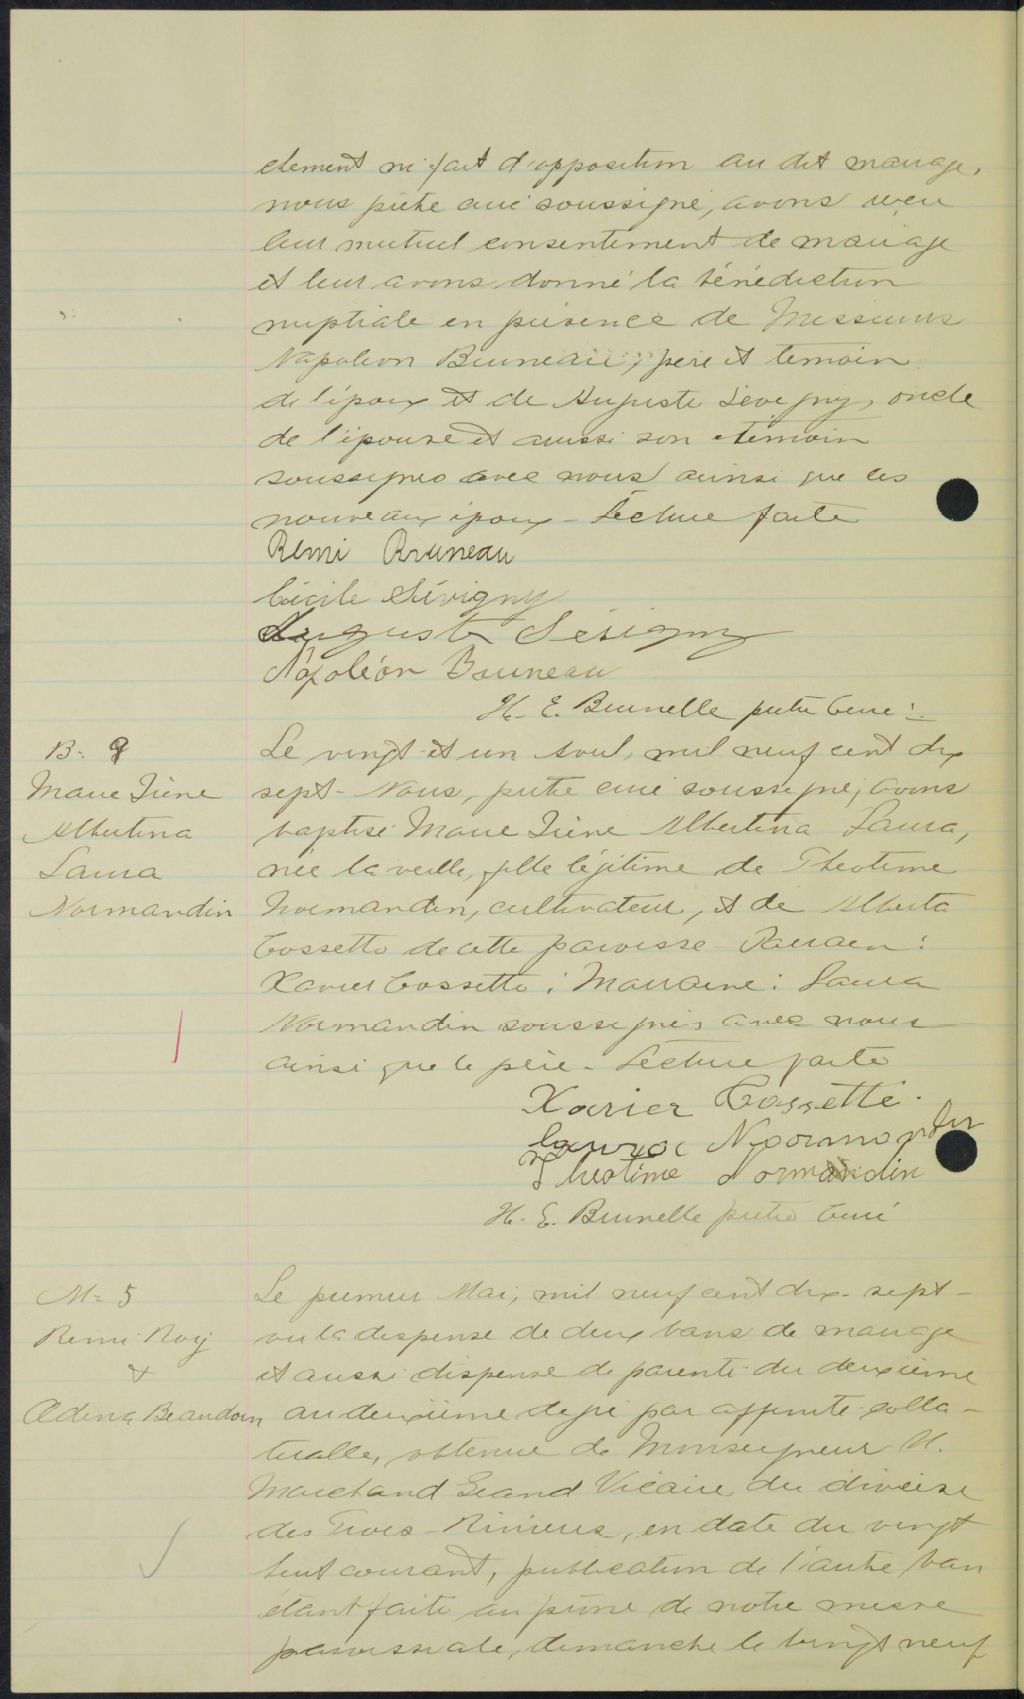 element ni fait d'opposition au dit mariage,
nous prêtre curé soussigné, avons reçu
leur mutuel consentement de mariage
et leur avons donné la bénédiction
nuptiale en présence de Messieurs
Napoléon Bruneau, père et témoin
de l'époux et de Auguste Sévigny, oncle
de l'épouse et aussi son témoin
soussignés avec nous ainsi que les
nouveaux époux - Lecture faite
Rémi Bruneau
Cécile Sévigny
Auguste Sévigny
Napoléon Bruneau
H. E. Brunelle prêtre Curé
B: 8
Marie Irène
Albertina
Laura
Normandin
Le vingt et un avril, mil neuf cent dix
sept - Nous, prêtre curé soussigné, avons
baptisé Marie Irène Albertina Laura,
née la veille, fille légitime de Théotime
Normandin, cultivateur, et de Alberta
Cossette de cette paroisse - Parrain :
Xavier Cossette ; Marraine : Laura
Normandin soussignés avec nous
ainsi que le père - Lecture faite
Xavier Cossette
Laura Normandin
Théotime Normandin
H. E. Brunelle prêtre Curé
M= 5
Rémi Roy
&
Adena Beaudoin
Le premier Mai, mil neuf cent dix-sept -
vu la dispense de deux bans de mariage
et aussi dispense de parenté du deuxième
au deuxième degré par affinité colla-
téralle, obtenue de Monseigneur U.
Marchand Grand Vicaire du diocèse
des Trois-Rivières, en date du vingt
huit courant, publication de l'autre ban
étant faite au prône de notre messe
paroissiale, dimanche le vingt neuf